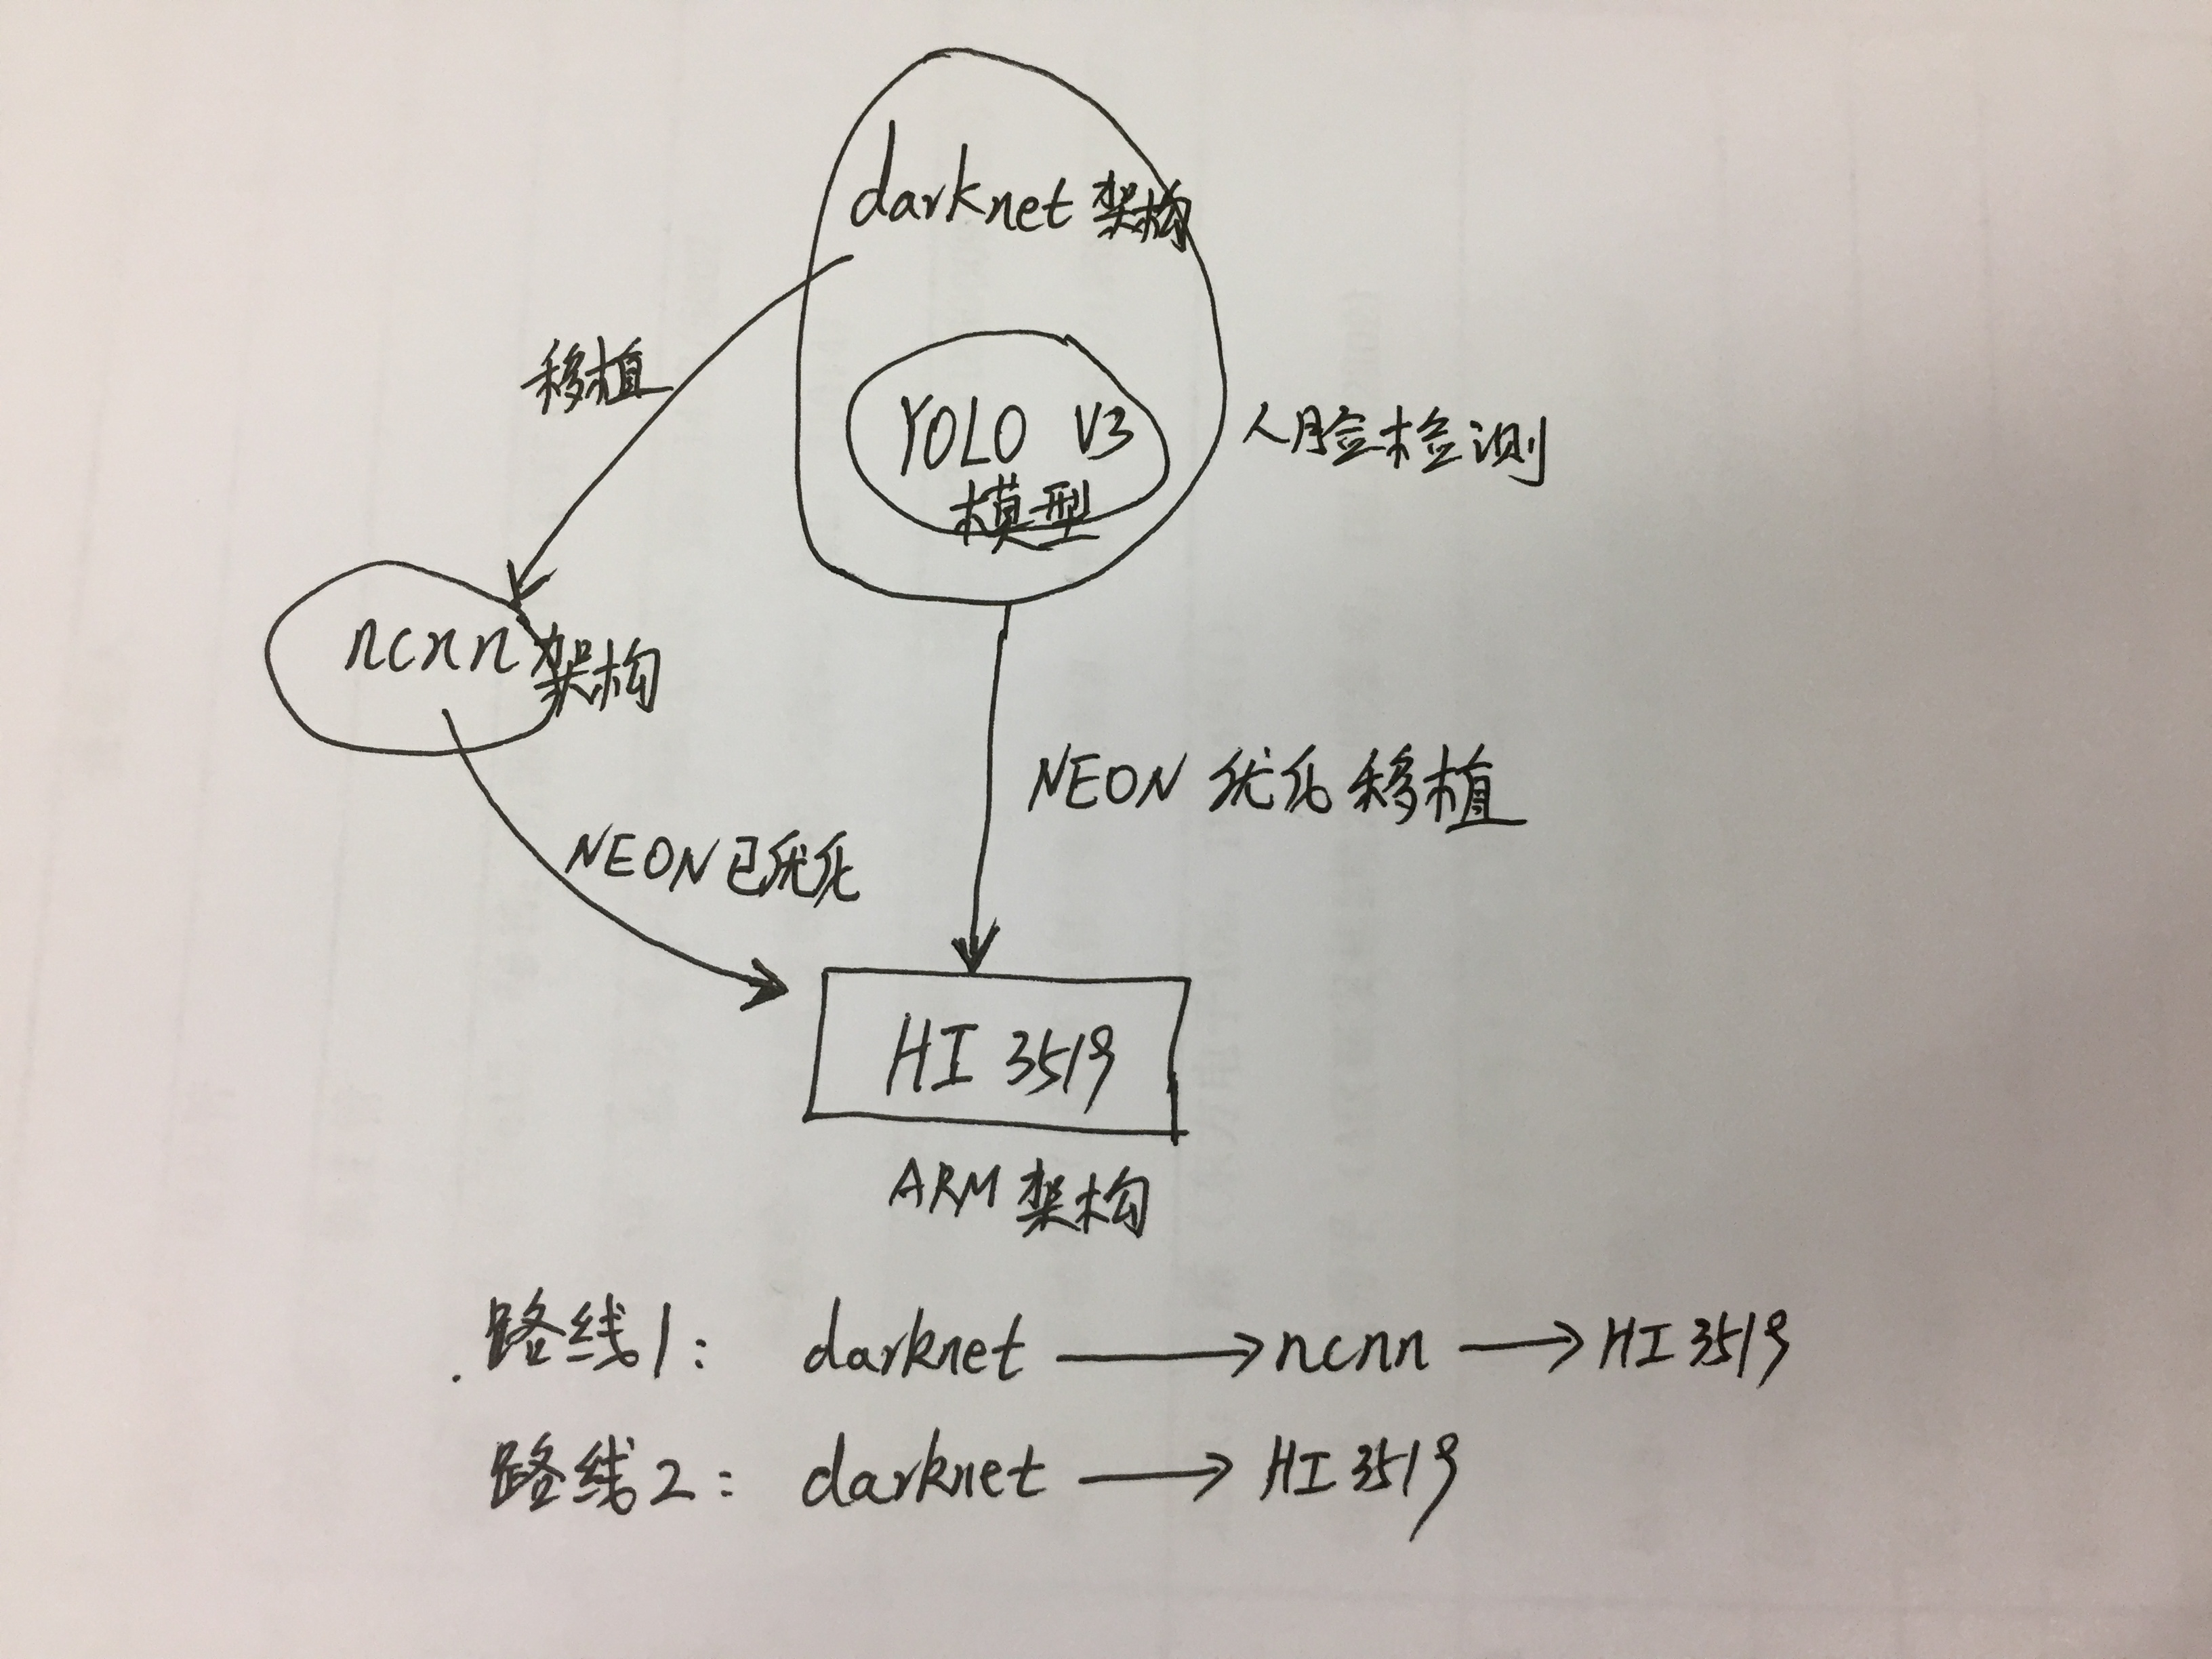 darknet 架构
移植
YOLO V3
模型
人脸检测
ncnn 架构
NEON 优化移植
NEON已优化
HI 3519
ARM 架构
路线1: darknet → ncnn → HI 3519
路线2: darknet → HI 3519